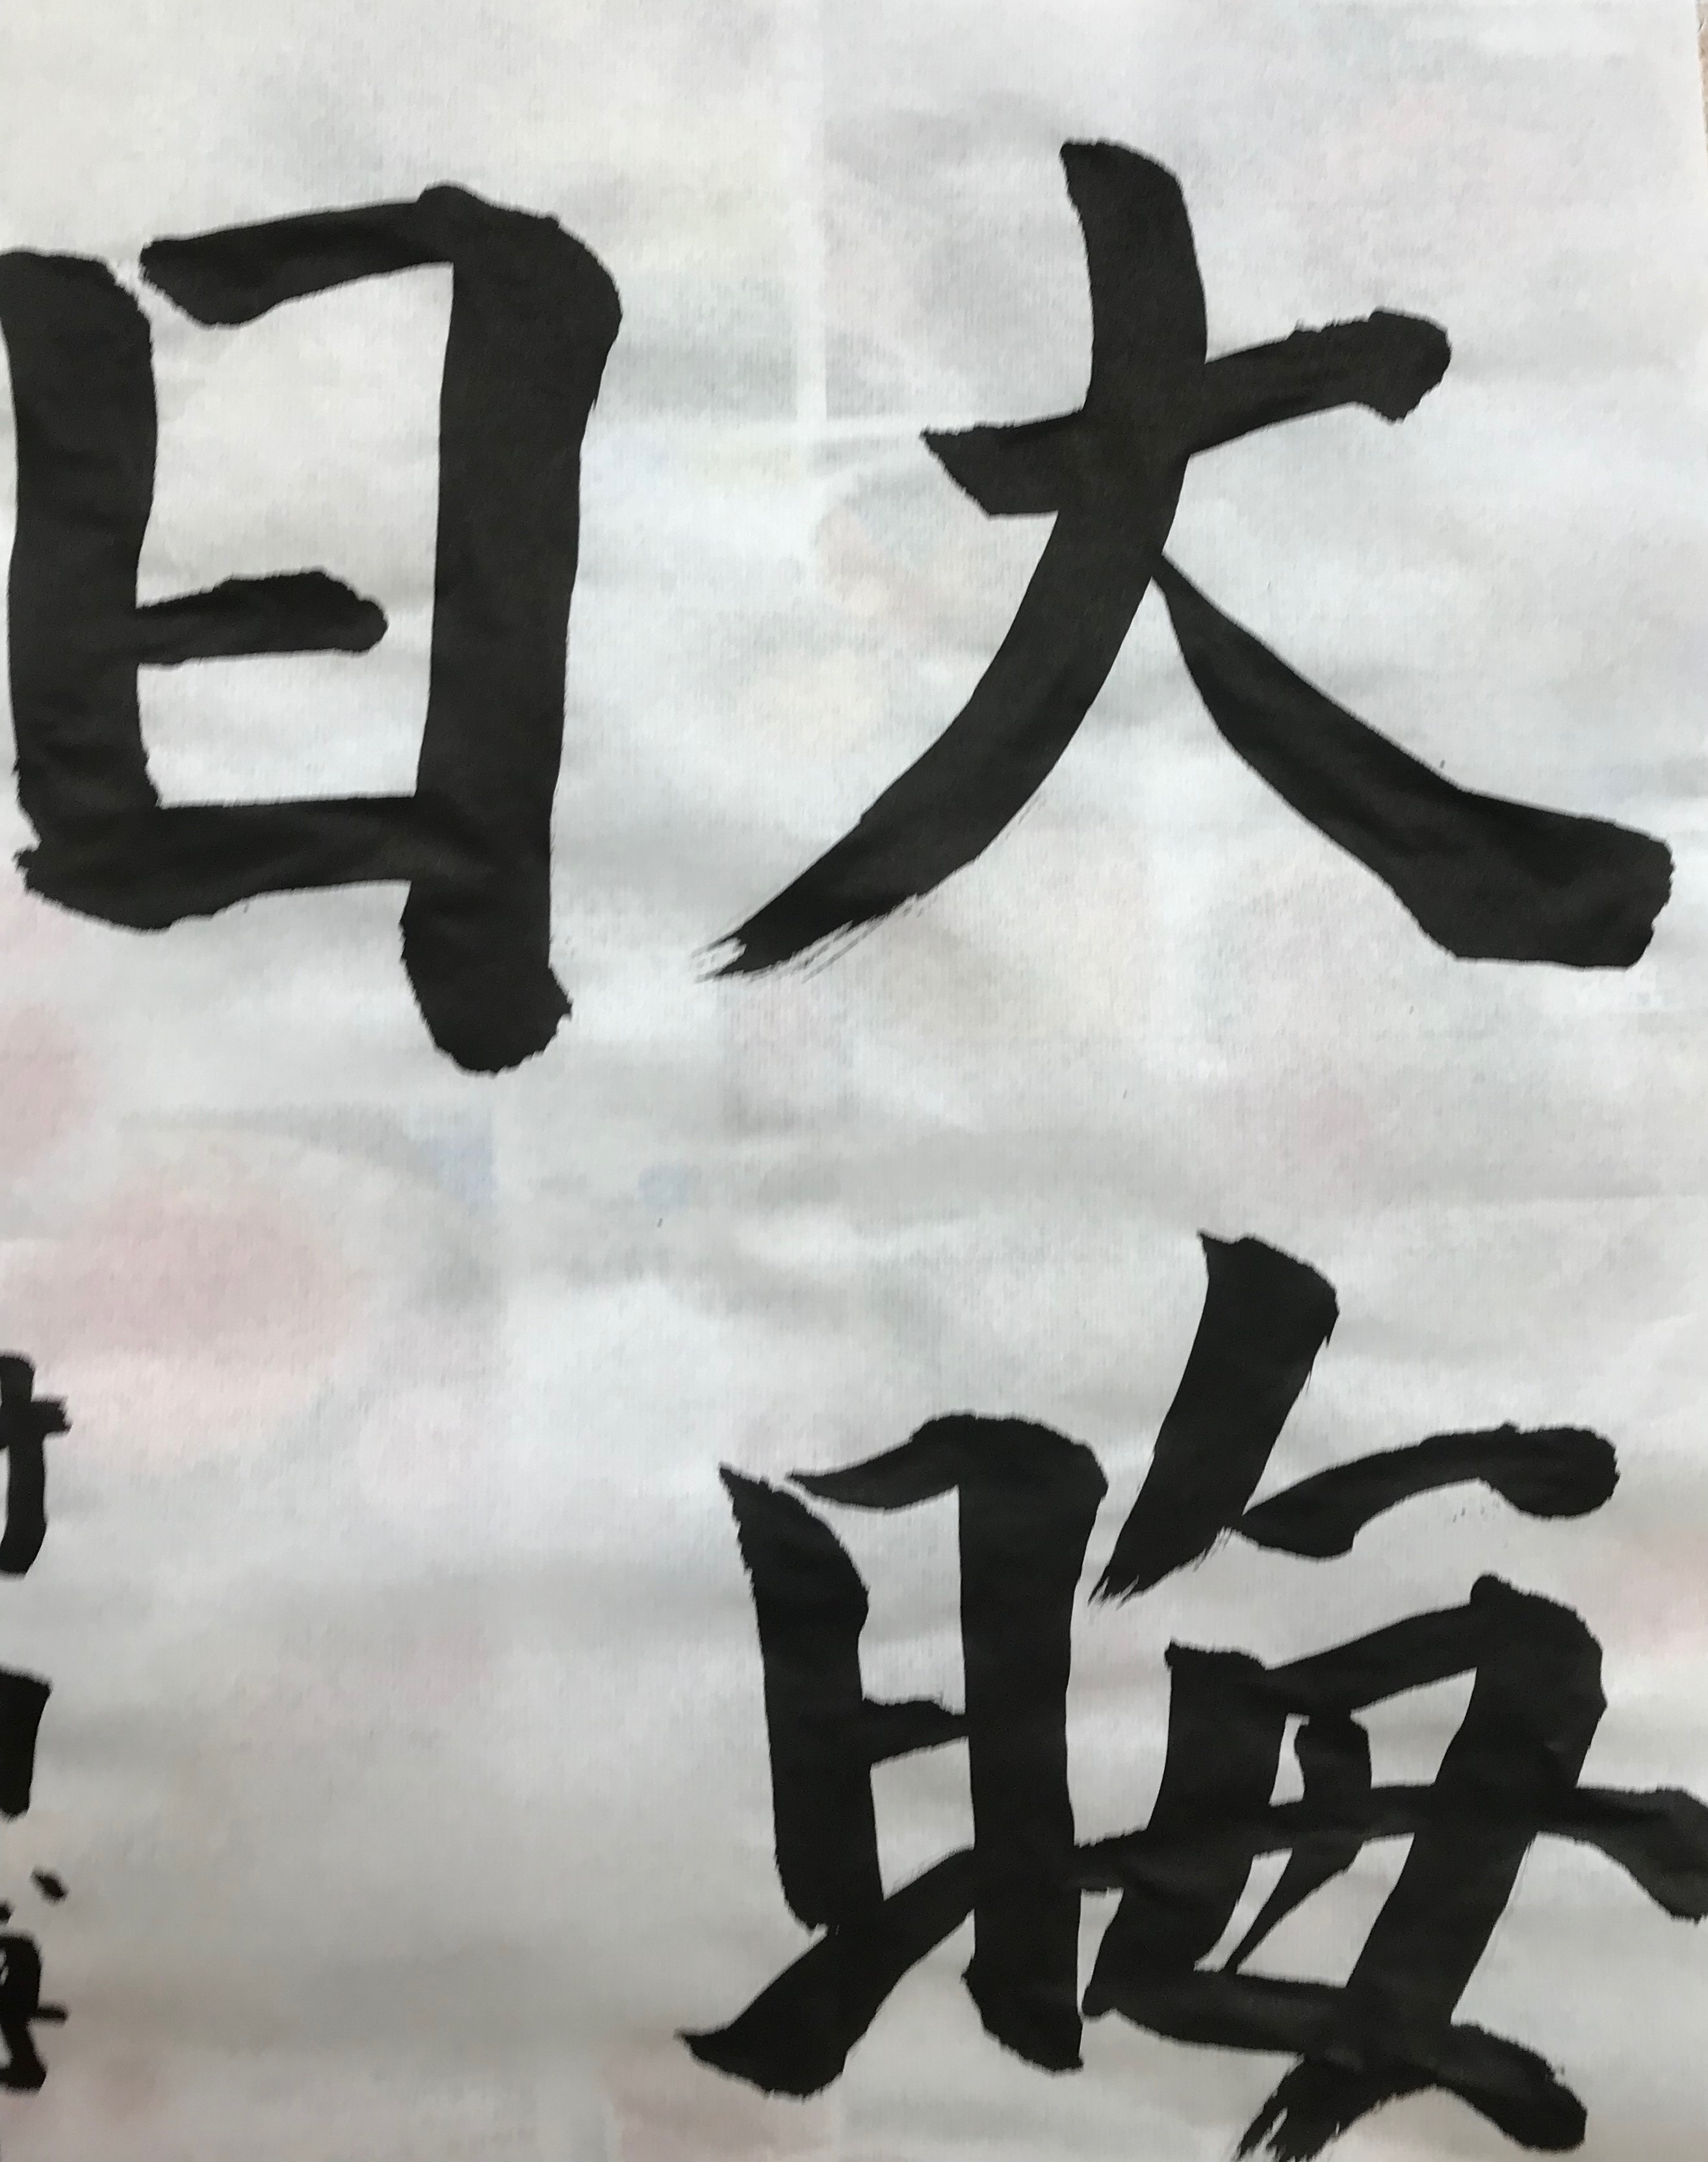 大晦
日